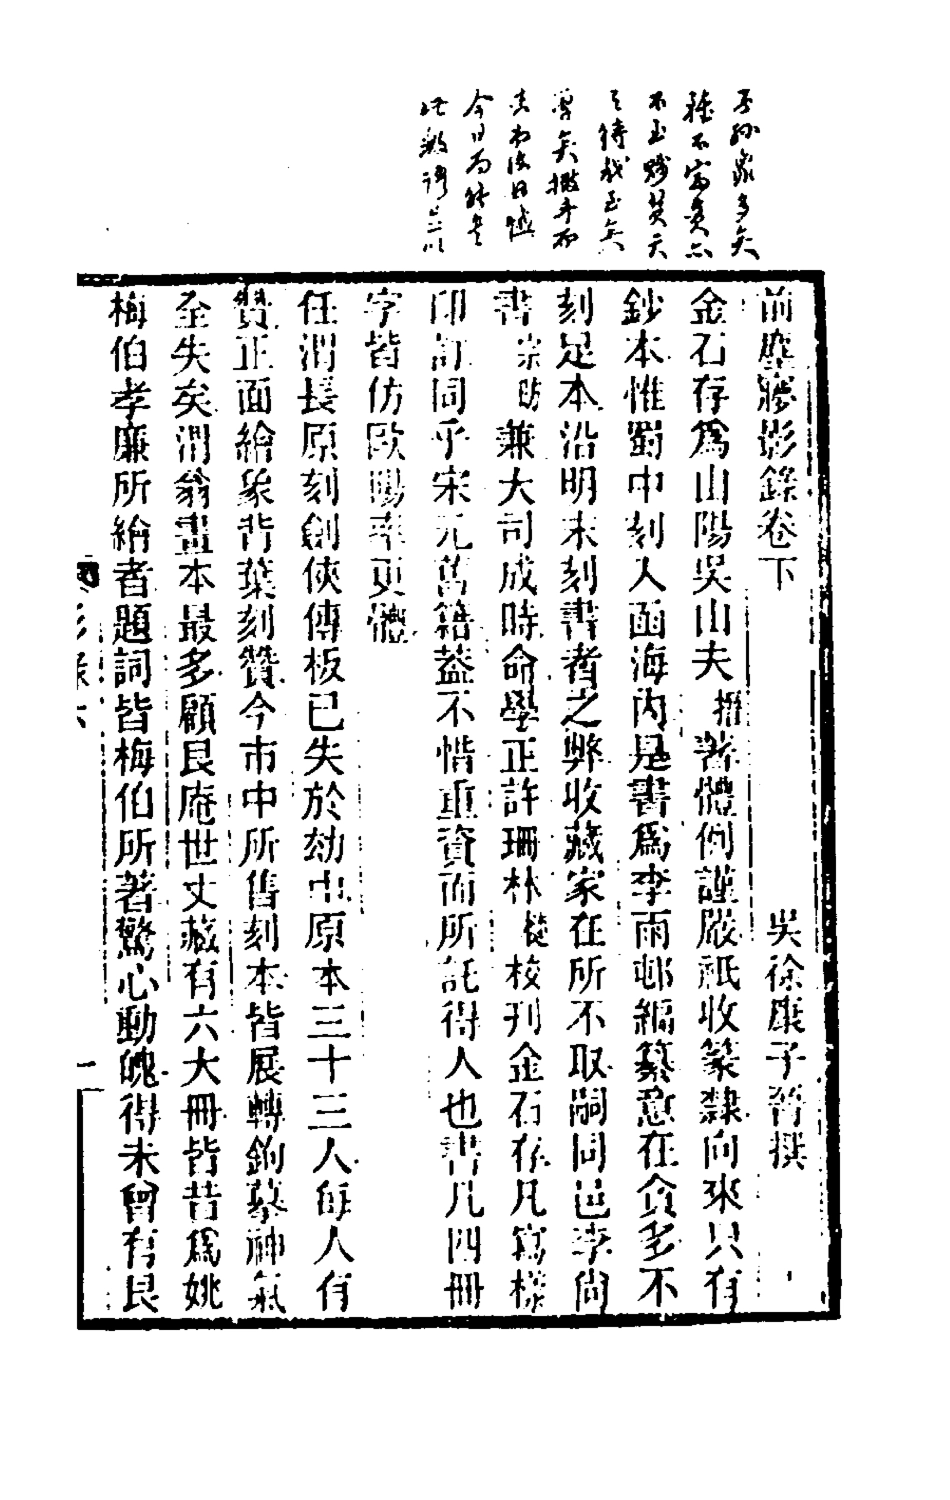 前塵夢影錄卷下
吳徐康子晉撰
金石存爲山陽吳山夫搢著體例謹嚴祇收篆隸向來只有
鈔本惟蜀中刻入函海內是書爲李雨邨編纂意在貪多不
刻足本沿明末刻書者之弊收藏家在所不取嗣同邑李尙
書宗昉兼大司成時命學正許珊林槤校刊金石存凡寫樣
印訂同乎宋元舊籍葢不惜重資而所託得人也書凡四冊
字皆仿歐陽率更體
任渭長原刻劍俠傳板已失於劫中原本三十三人每人有
贊正面繪象背葉刻贊今市中所售刻本皆展轉鉤摹神氣
全失矣渭翁畫本最多顧艮庵世丈藏有六大冊皆昔爲姚
梅伯孝廉所繪者題詞皆梅伯所著驚心動魄得未曾有艮